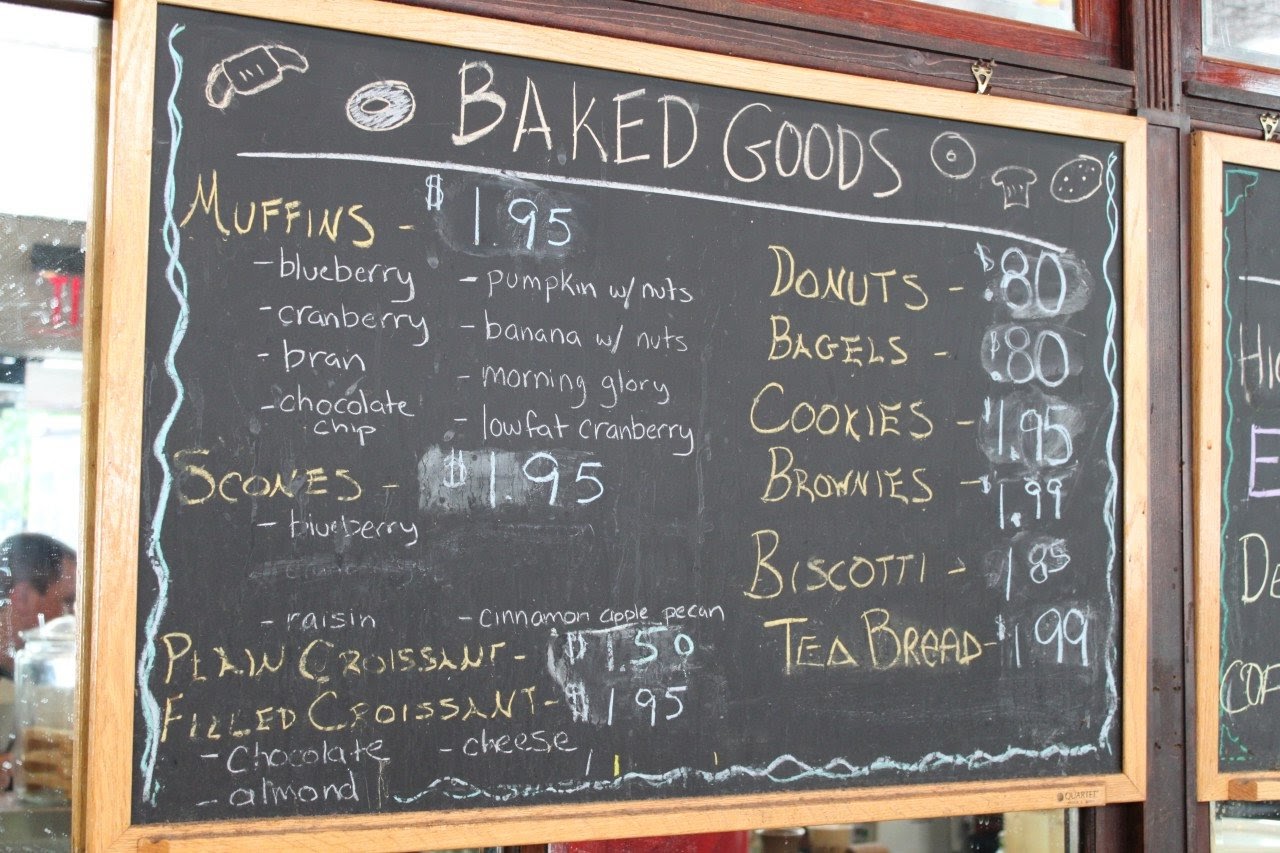 BAKED GOODS
MUFFINS - $1.95
- blueberry
- cranberry
- bran
- chocolate
chip
- pumpkin w/ nuts
- banana w/ nuts
- morning glory
- lowfat cranberry
SCONES - $1.95
- blueberry
- raisin
- cinnamon apple pecan
PLAIN CROISSANT - $1.50
FILLED CROISSANT - $1.95
- chocolate
- cheese
- almond
DONUTS - $.80
BAGELS - $.80
COOKIES - $1.95
BROWNIES - $1.99
BISCOTTI - 1.85
TEA BREAD - $1.99
QUARTET